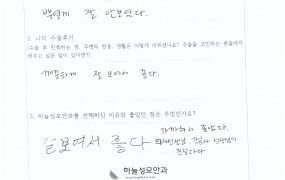 뿌옇게 잘 안보였다.
2. 나의 수술후기
(수술 후 만족하는 점, 주변의 반응, 생활은 어떻게 바뀌셨나요? 수술을 고민하는 분들에게
해주고 싶은 말이 있다면?)
깨끗하게 잘 보여서 좋다.
3. 하늘성모안과를 선택하신 이유와 좋았던 점은 무엇인가요?
잘보여서 좋다
가까워서 좋았다.
의사선생님, 간호사 선생님이
친절하다
하늘성모안과